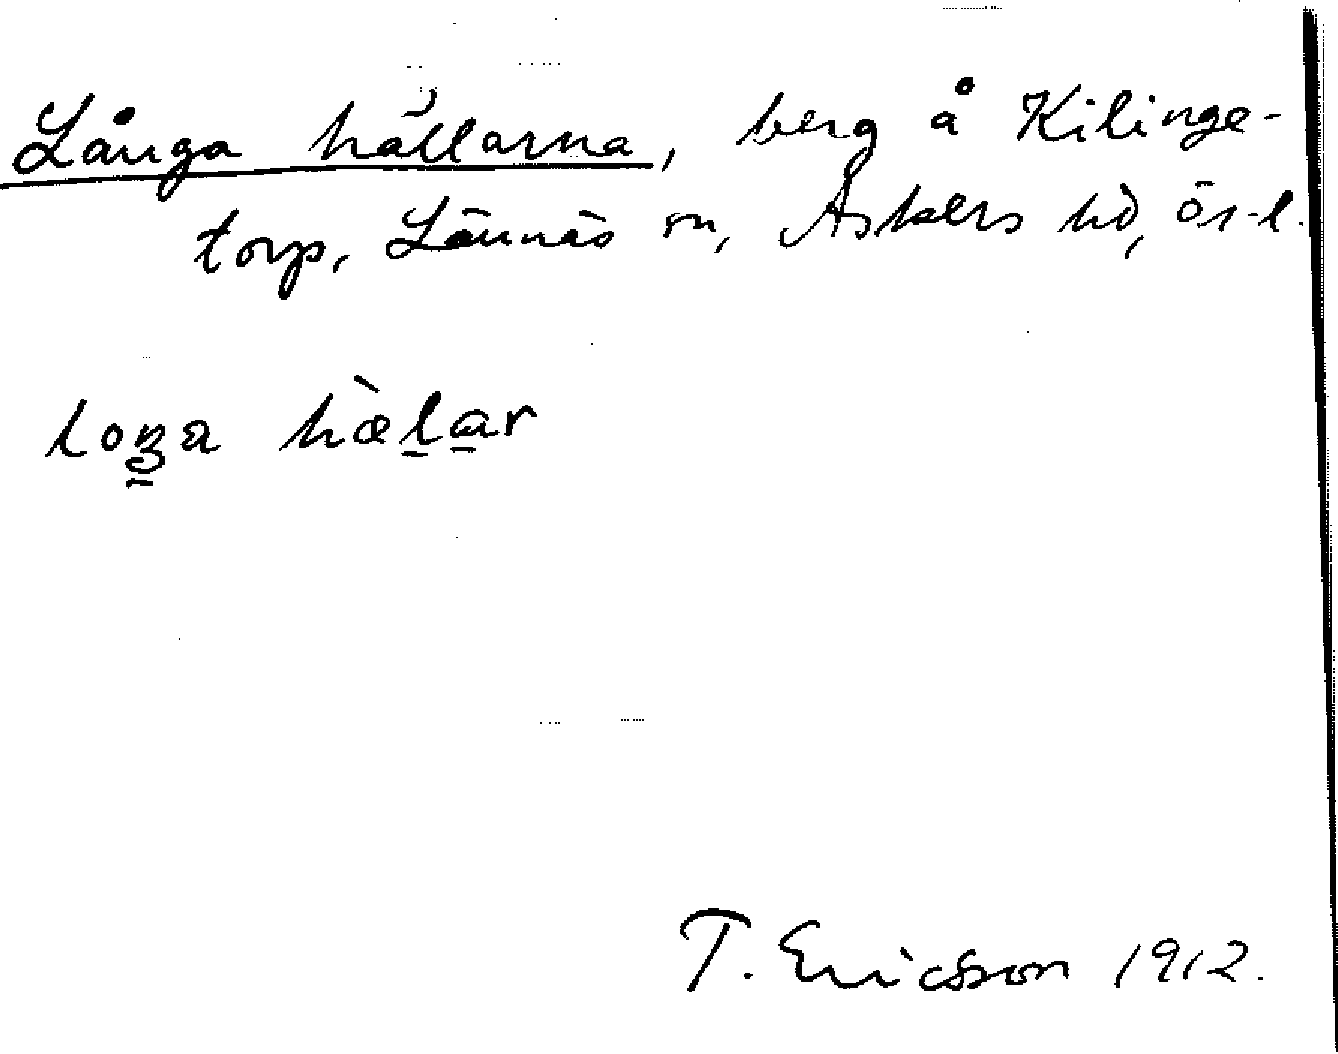 Långa hällarna, berg å Kilinge-
torp, Lännäs sn, Askers hd, ör-l.
loŋa hæ̀lar
T. Ericsson 1912.